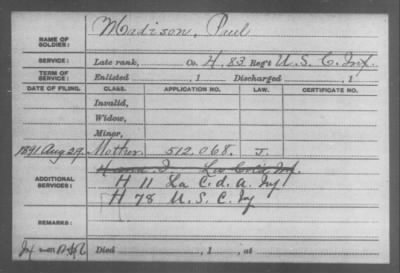 NAME OF SOLDIER: Madison, Paul
SERVICE: Late rank, Co. H, 83 Reg't U. S. C. Inf.
TERM OF SERVICE: Enlisted , 1 Discharged , 1
DATE OF FILING. CLASS. APPLICATION NO. LAW. CERTIFICATE NO.
Invalid,
Widow,
Minor,
1891 Aug 29. Mother. 512.068. J.
ADDITIONAL SERVICES: H and I
H 11 La C. d. A. Inf
H 78 U. S. C. Inf
REMARKS:
Died , 1 , at